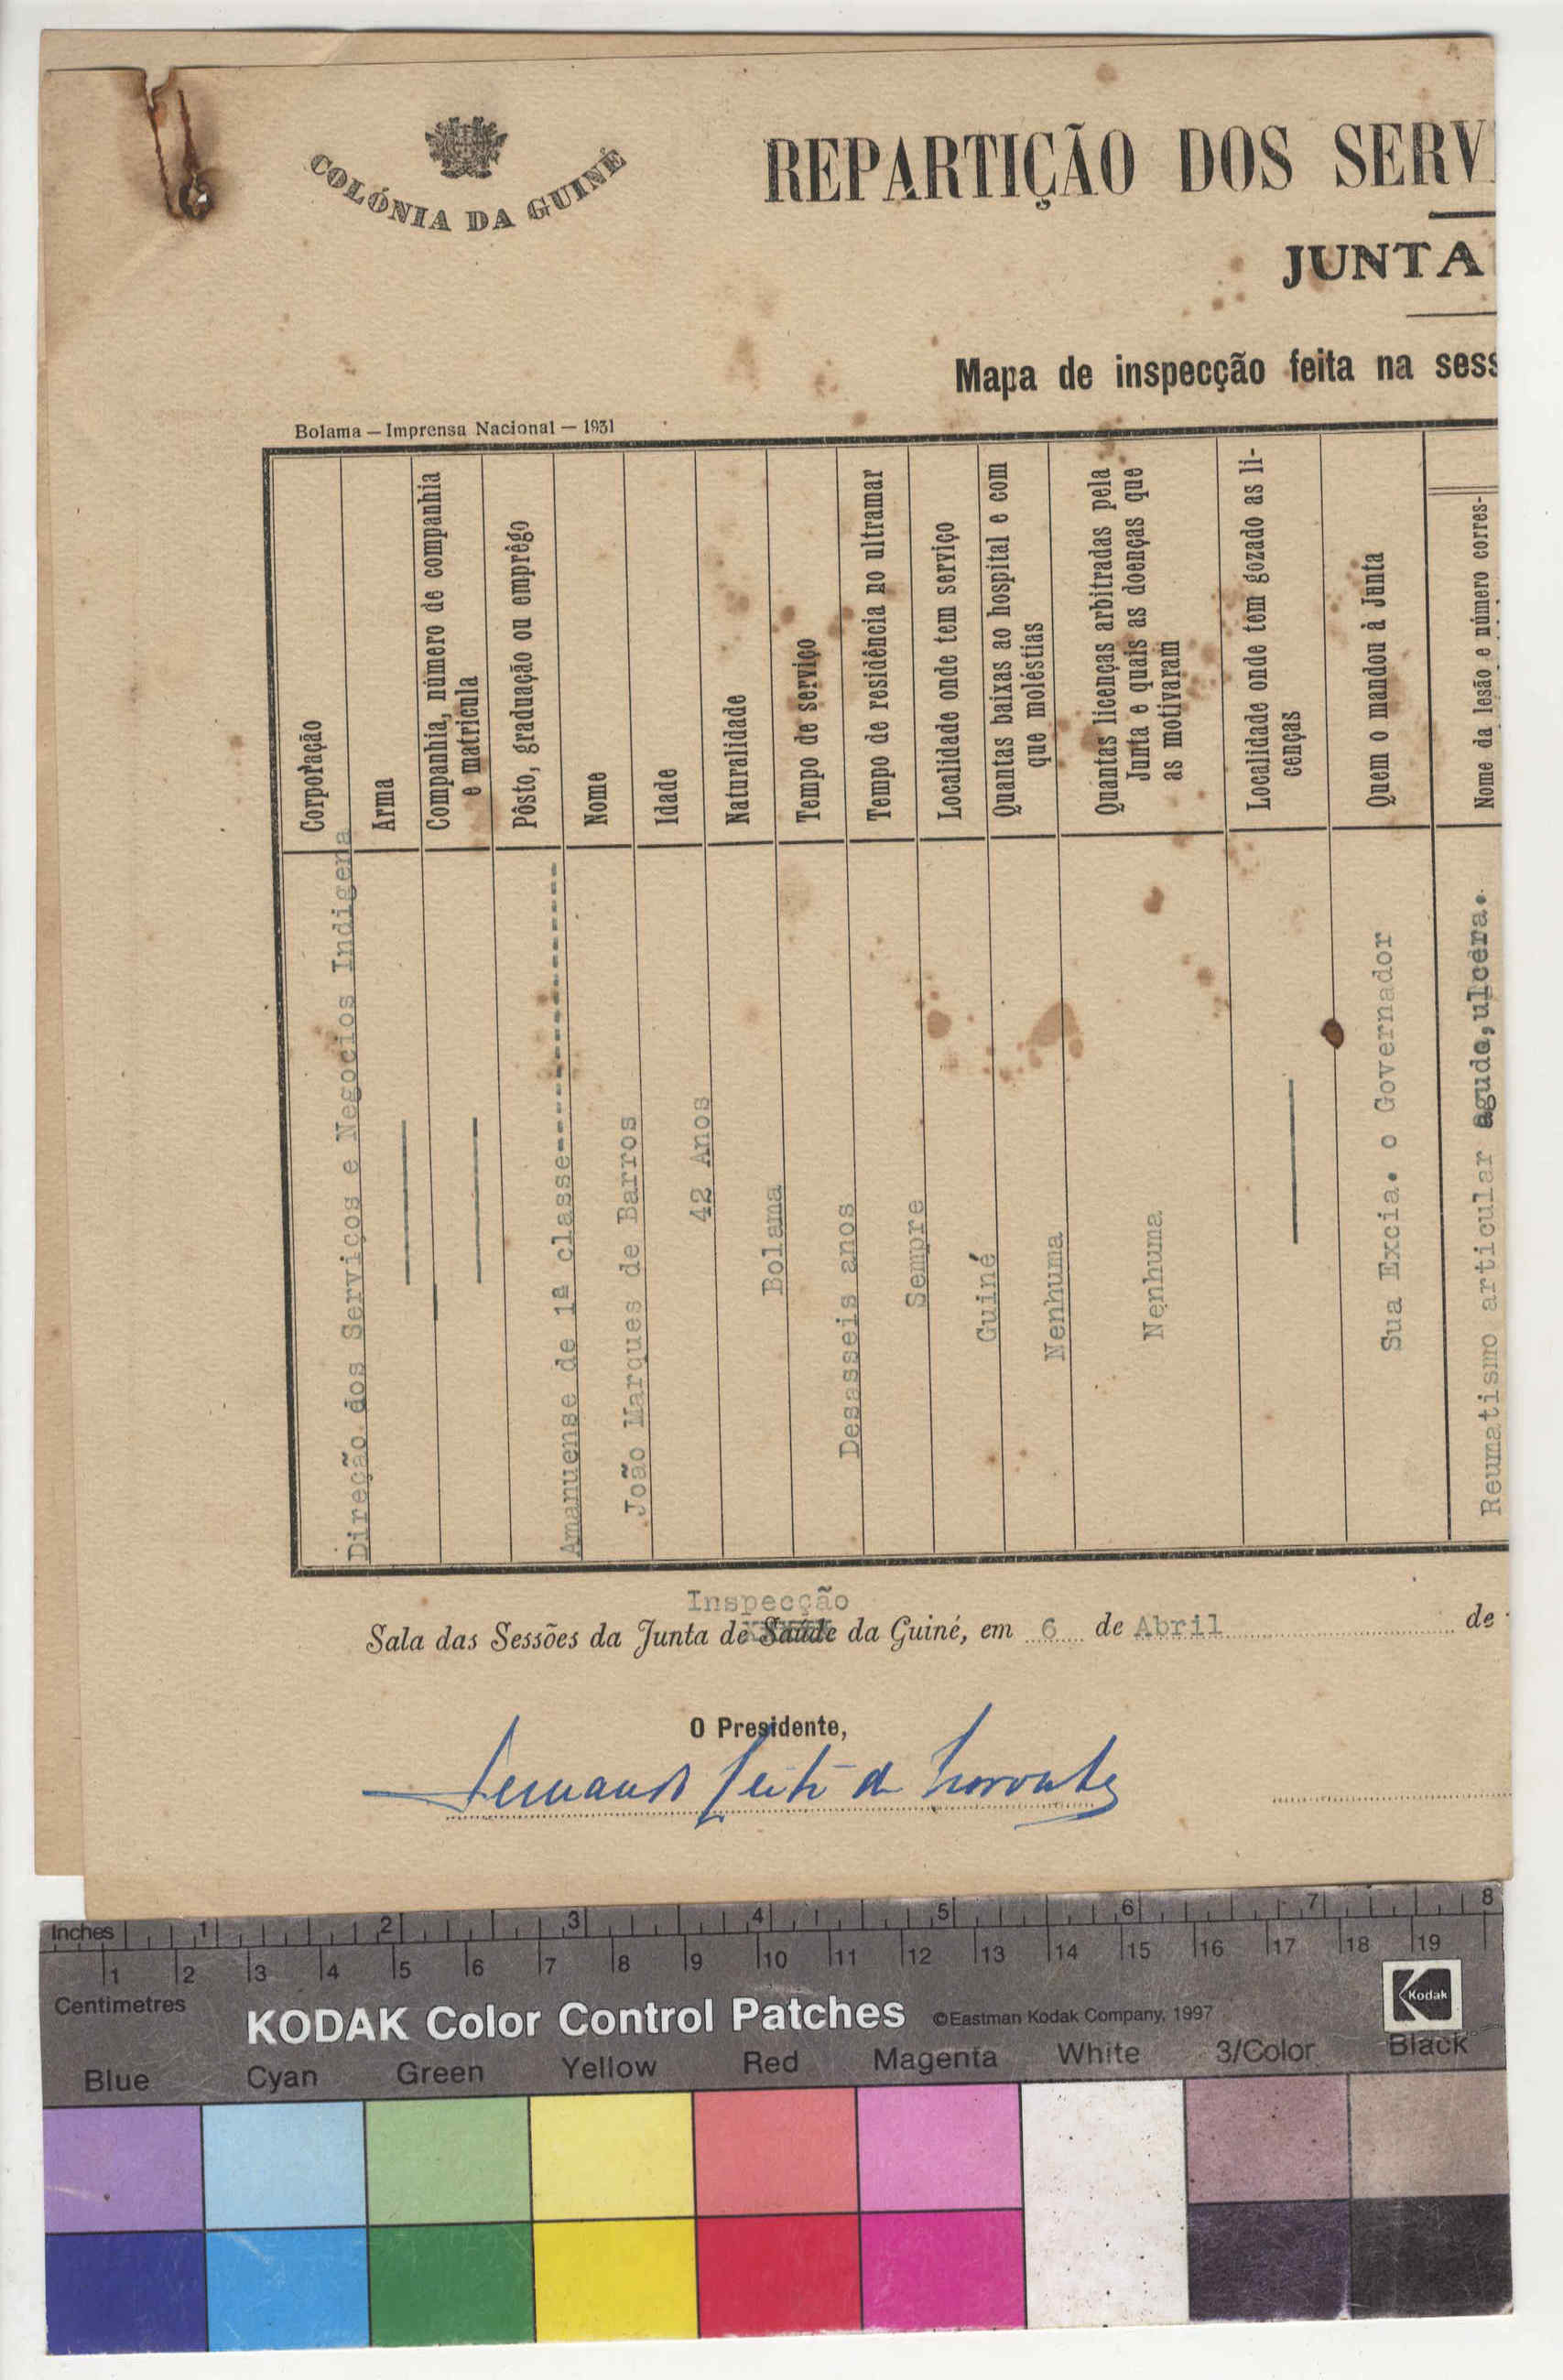 COLÓNIA DA GUINÉ
REPARTIÇÃO DOS SERV
JUNTA
Mapa de inspecção feita na sess
Bolama — Imprensa Nacional — 1931
Corporação
Direção dos Serviços e Negocios Indigena
Arma
Companhia, número de companhia
e matricula
Pôsto, graduação ou emprêgo
Amanuense de 1ª classe
Nome
João Marques de Barros
Idade
42 Anos
Naturalidade
Bolama
Tempo de serviço
Desasseis anos
Tempo de residência no ultramar
Sempre
Localidade onde tem serviço
Guiné
Quantas baixas ao hospital e com
que moléstias
Nenhuma
Quantas licenças arbitradas pela
Junta e quais as doenças que
as motivaram
Nenhuma
Localidade onde tem gozado as li-
cenças
Quem o mandou à Junta
Sua Excia. o Governador
Nome da lesão e número corres-
Reumatismo articular agudo,ulcera.
Inspecção
Sala das Sessões da Junta de Saúde da Guiné, em 6 de Abril de
O Presidente,
Inches 1 2 3 4 5 6 7 8
1 2 3 4 5 6 7 8 9 10 11 12 13 14 15 16 17 18 19
Centimetres
KODAK Color Control Patches ©Eastman Kodak Company, 1997 Kodak
Blue Cyan Green Yellow Red Magenta White 3/Color Black